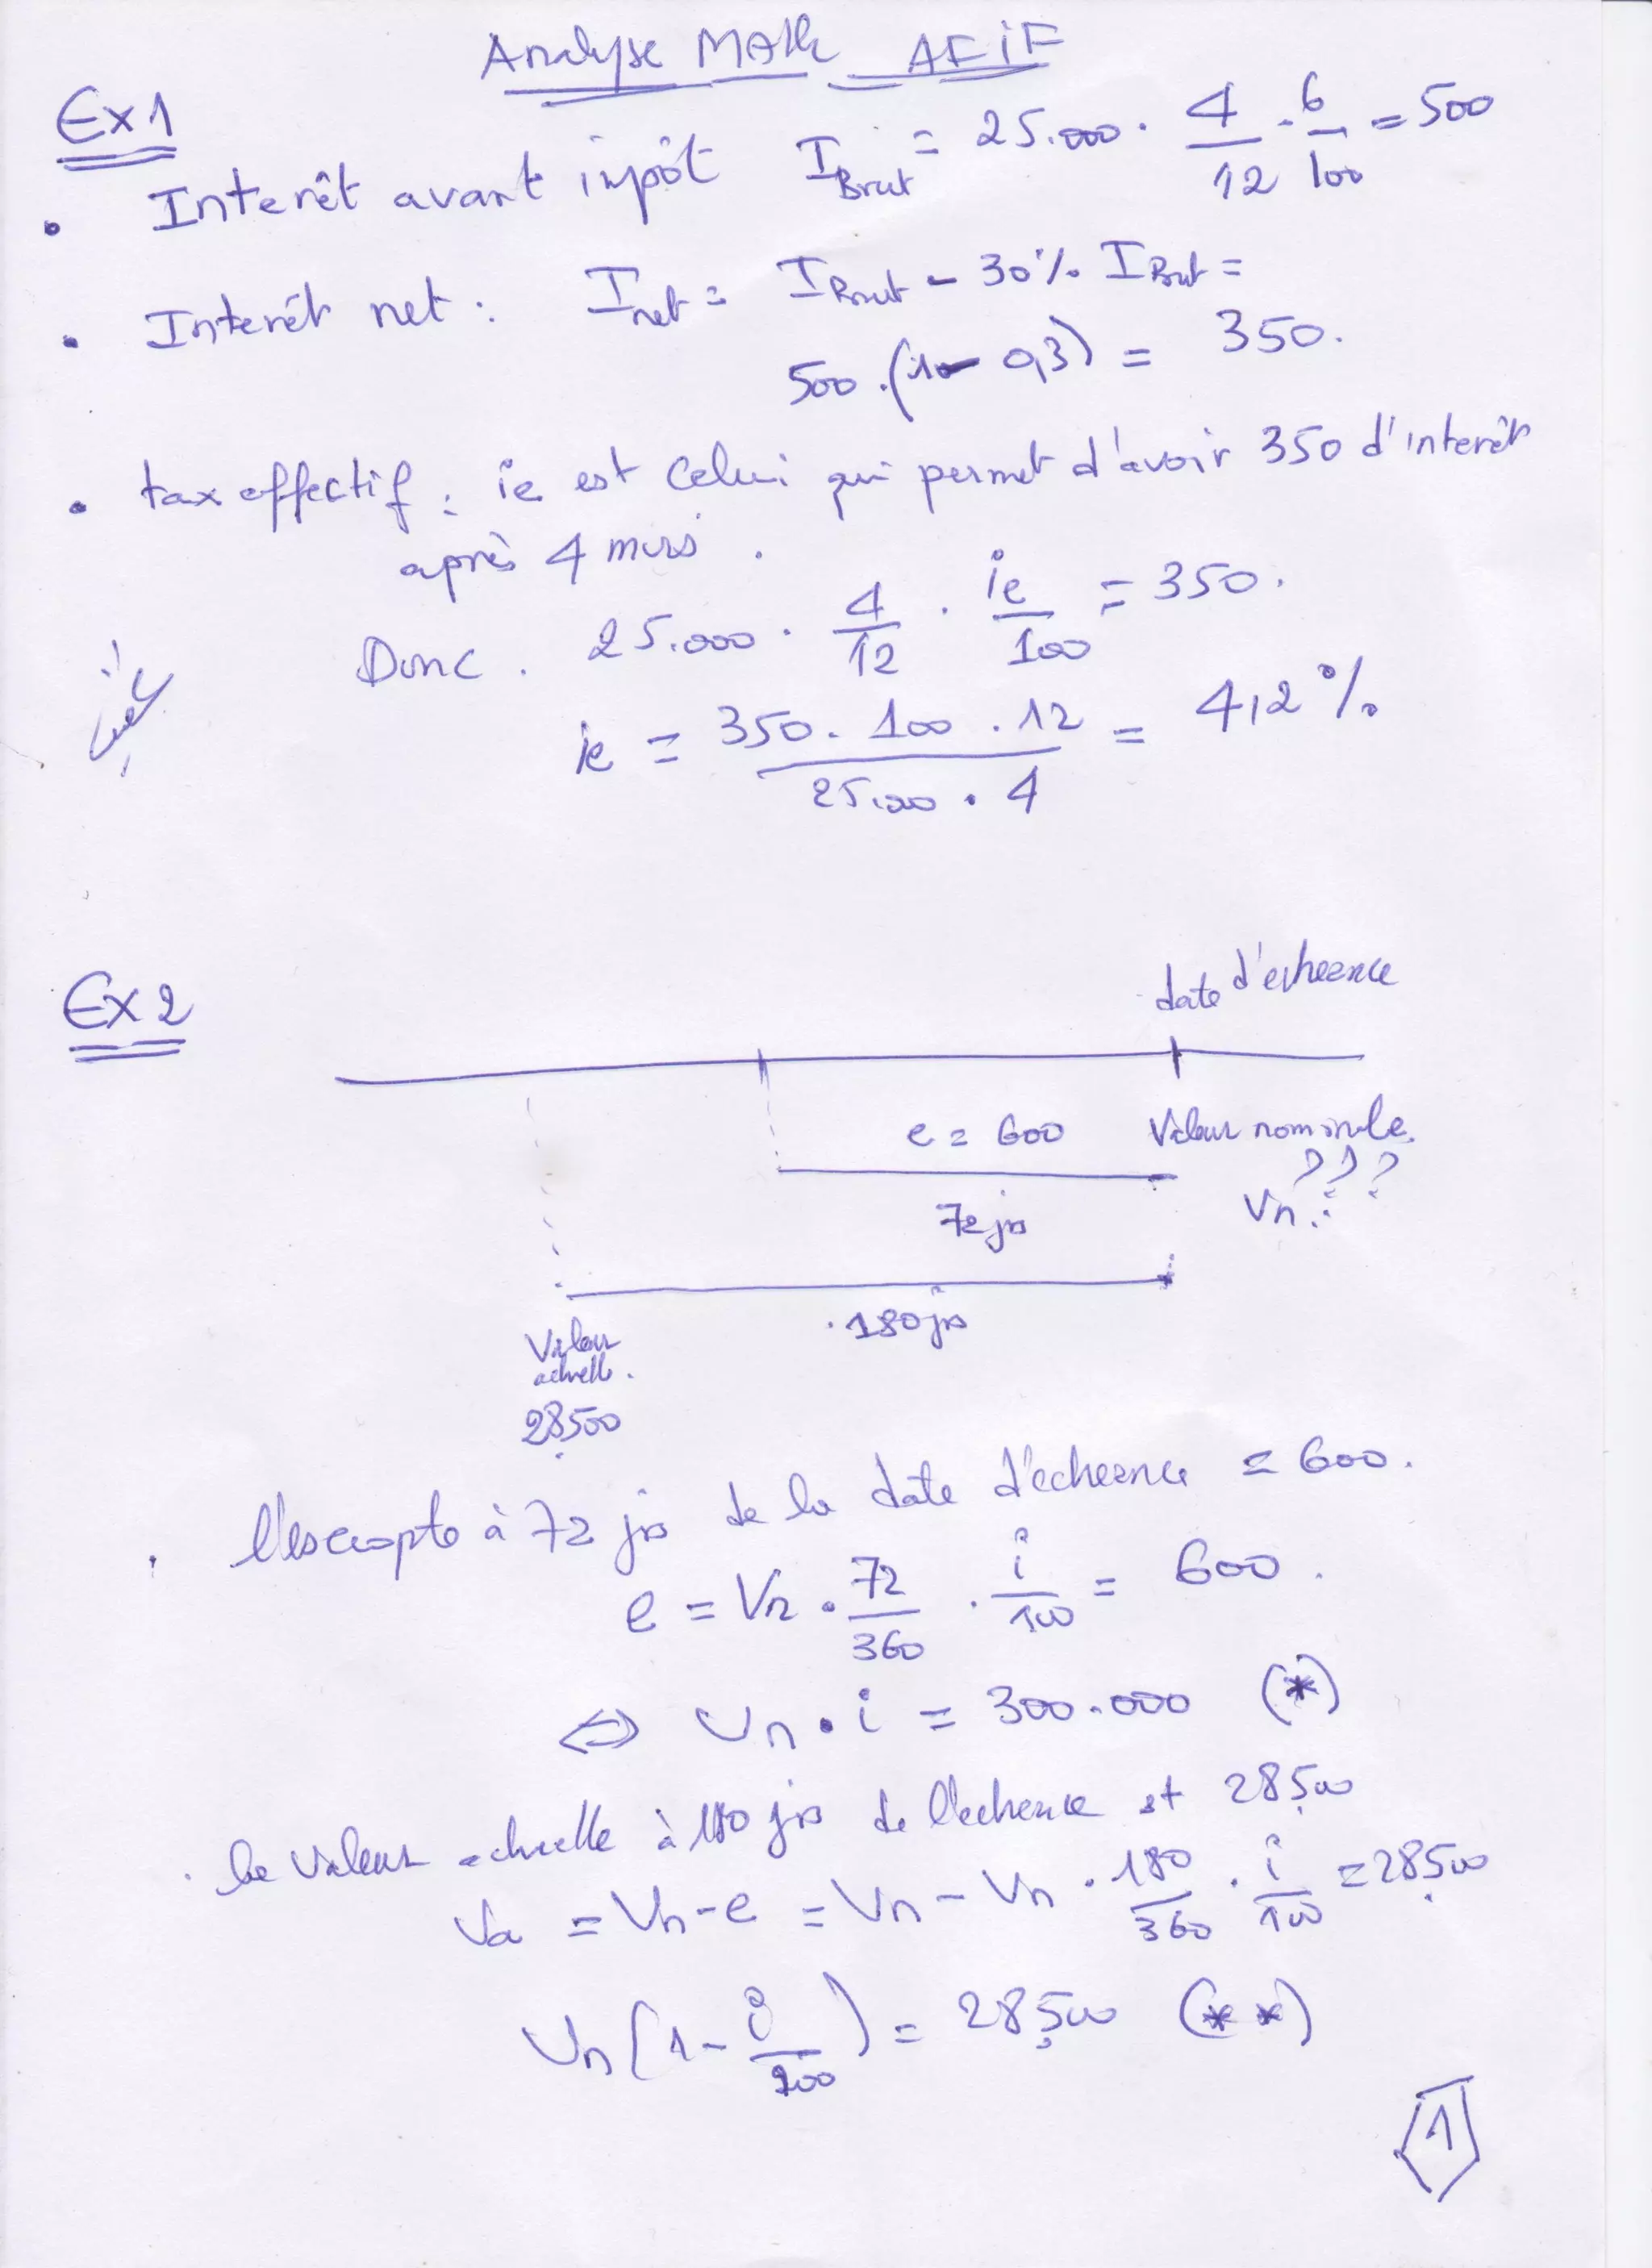 Analyse Math AFiF
Ex1
• Interêt avant impôt I_Brut = 25.000 · 4/12 · 6/100 = 500
• Interêt net : I_net = I_Brut - 30% I_Brut =
500 · (1 - 0,3) = 350.
• tax effectif : ie est celui qui permet d'avoir 350 d'interêt
après 4 mois .
Donc . 25.000 · 4/12 · ie/100 = 350.
ie = 350. 100 . 12 / 25.000 . 4 = 4,2 %
Ex 2
date d'echeance
e = 600 Valeur nominale
???
72 jrs Vn :
180 jrs
Valeur
actuelle.
28500
. l'escompte à 72 jrs de la date d'echeance = 600.
e = Vn · 72/360 · i/100 = 600 .
⇔ Vn • i = 300.000 (*)
. la valeur actuelle à 180 jrs de l'echeance est 28500
Va = Vn - e = Vn - Vn · 180/360 · i/100 = 28500
Vn (1 - i/200) = 28500 (**)
1